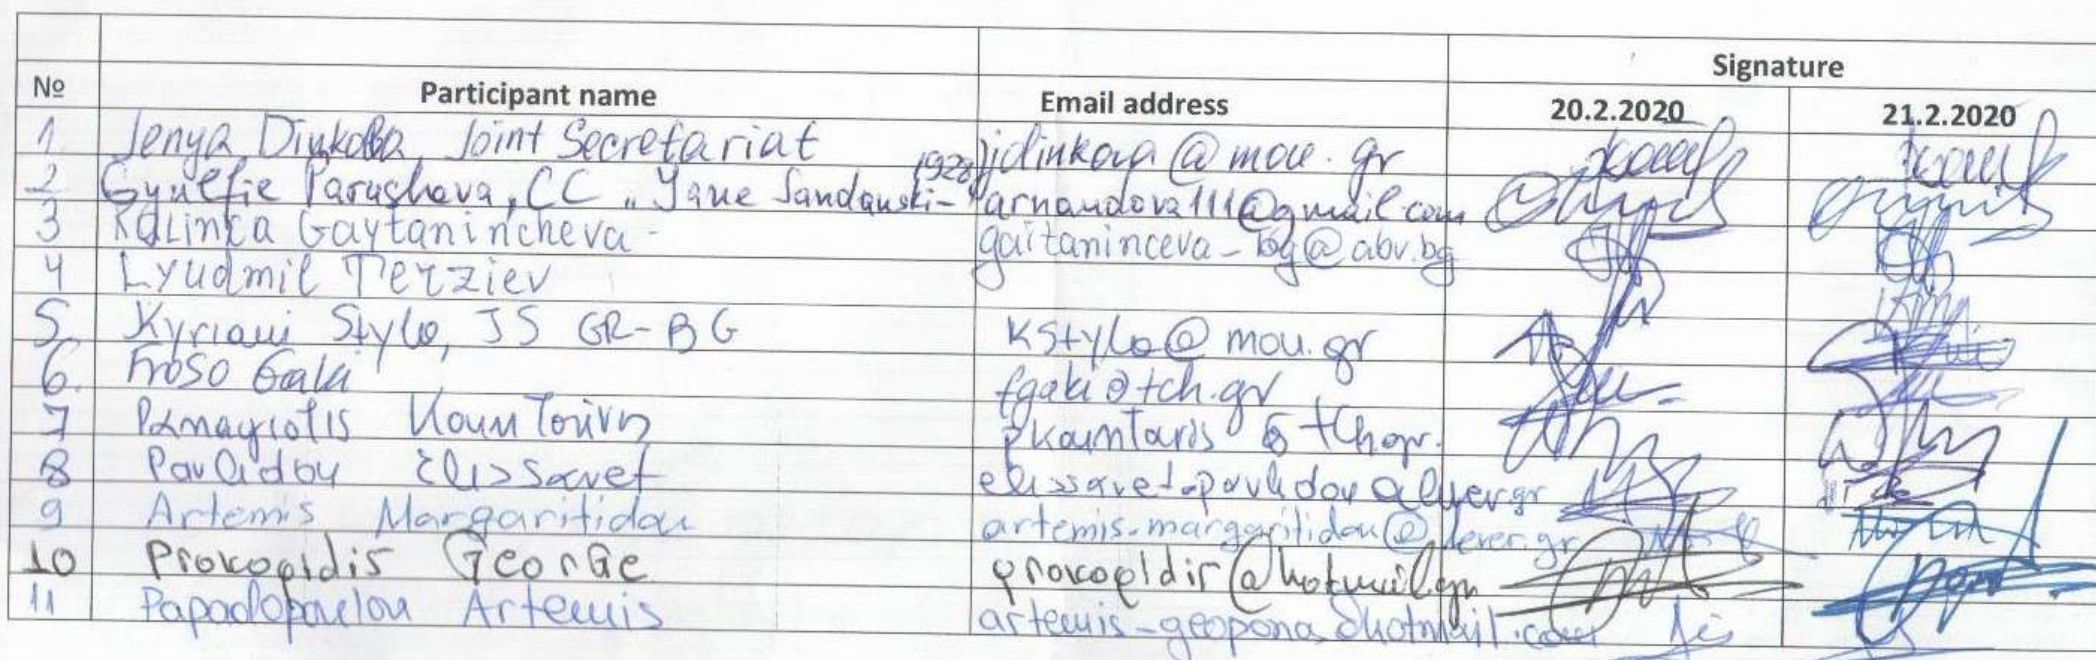 Signature
№ Participant name Email address 20.2.2020 21.2.2020
1. Jenya Dinkova, Joint Secretariat jdinkova@mou.gr
2 Gyulfie Parushova, CC „Yane Sandanski-1928" arnaudova111@gmail.com
3 Kalinka Gaytanincheva - gaitaninceva_bg@abv.bg
4 Lyudmil Terziev
5. Kyriaui Stylo, JS GR-BG kstylo@mou.gr
6. Froso Gaki fgaki@tch.gr
7 Panagiotis pkountaris tch.gr.
8 Pavlidou Elissavet
9 Artemis Margaritidou artemis-margaritidou@lever.gr
10 Prokopidis GeorGe prokopidis@hotmail.gr
11 Papadopoulou Artemis artemis-geopona@hotmail.com